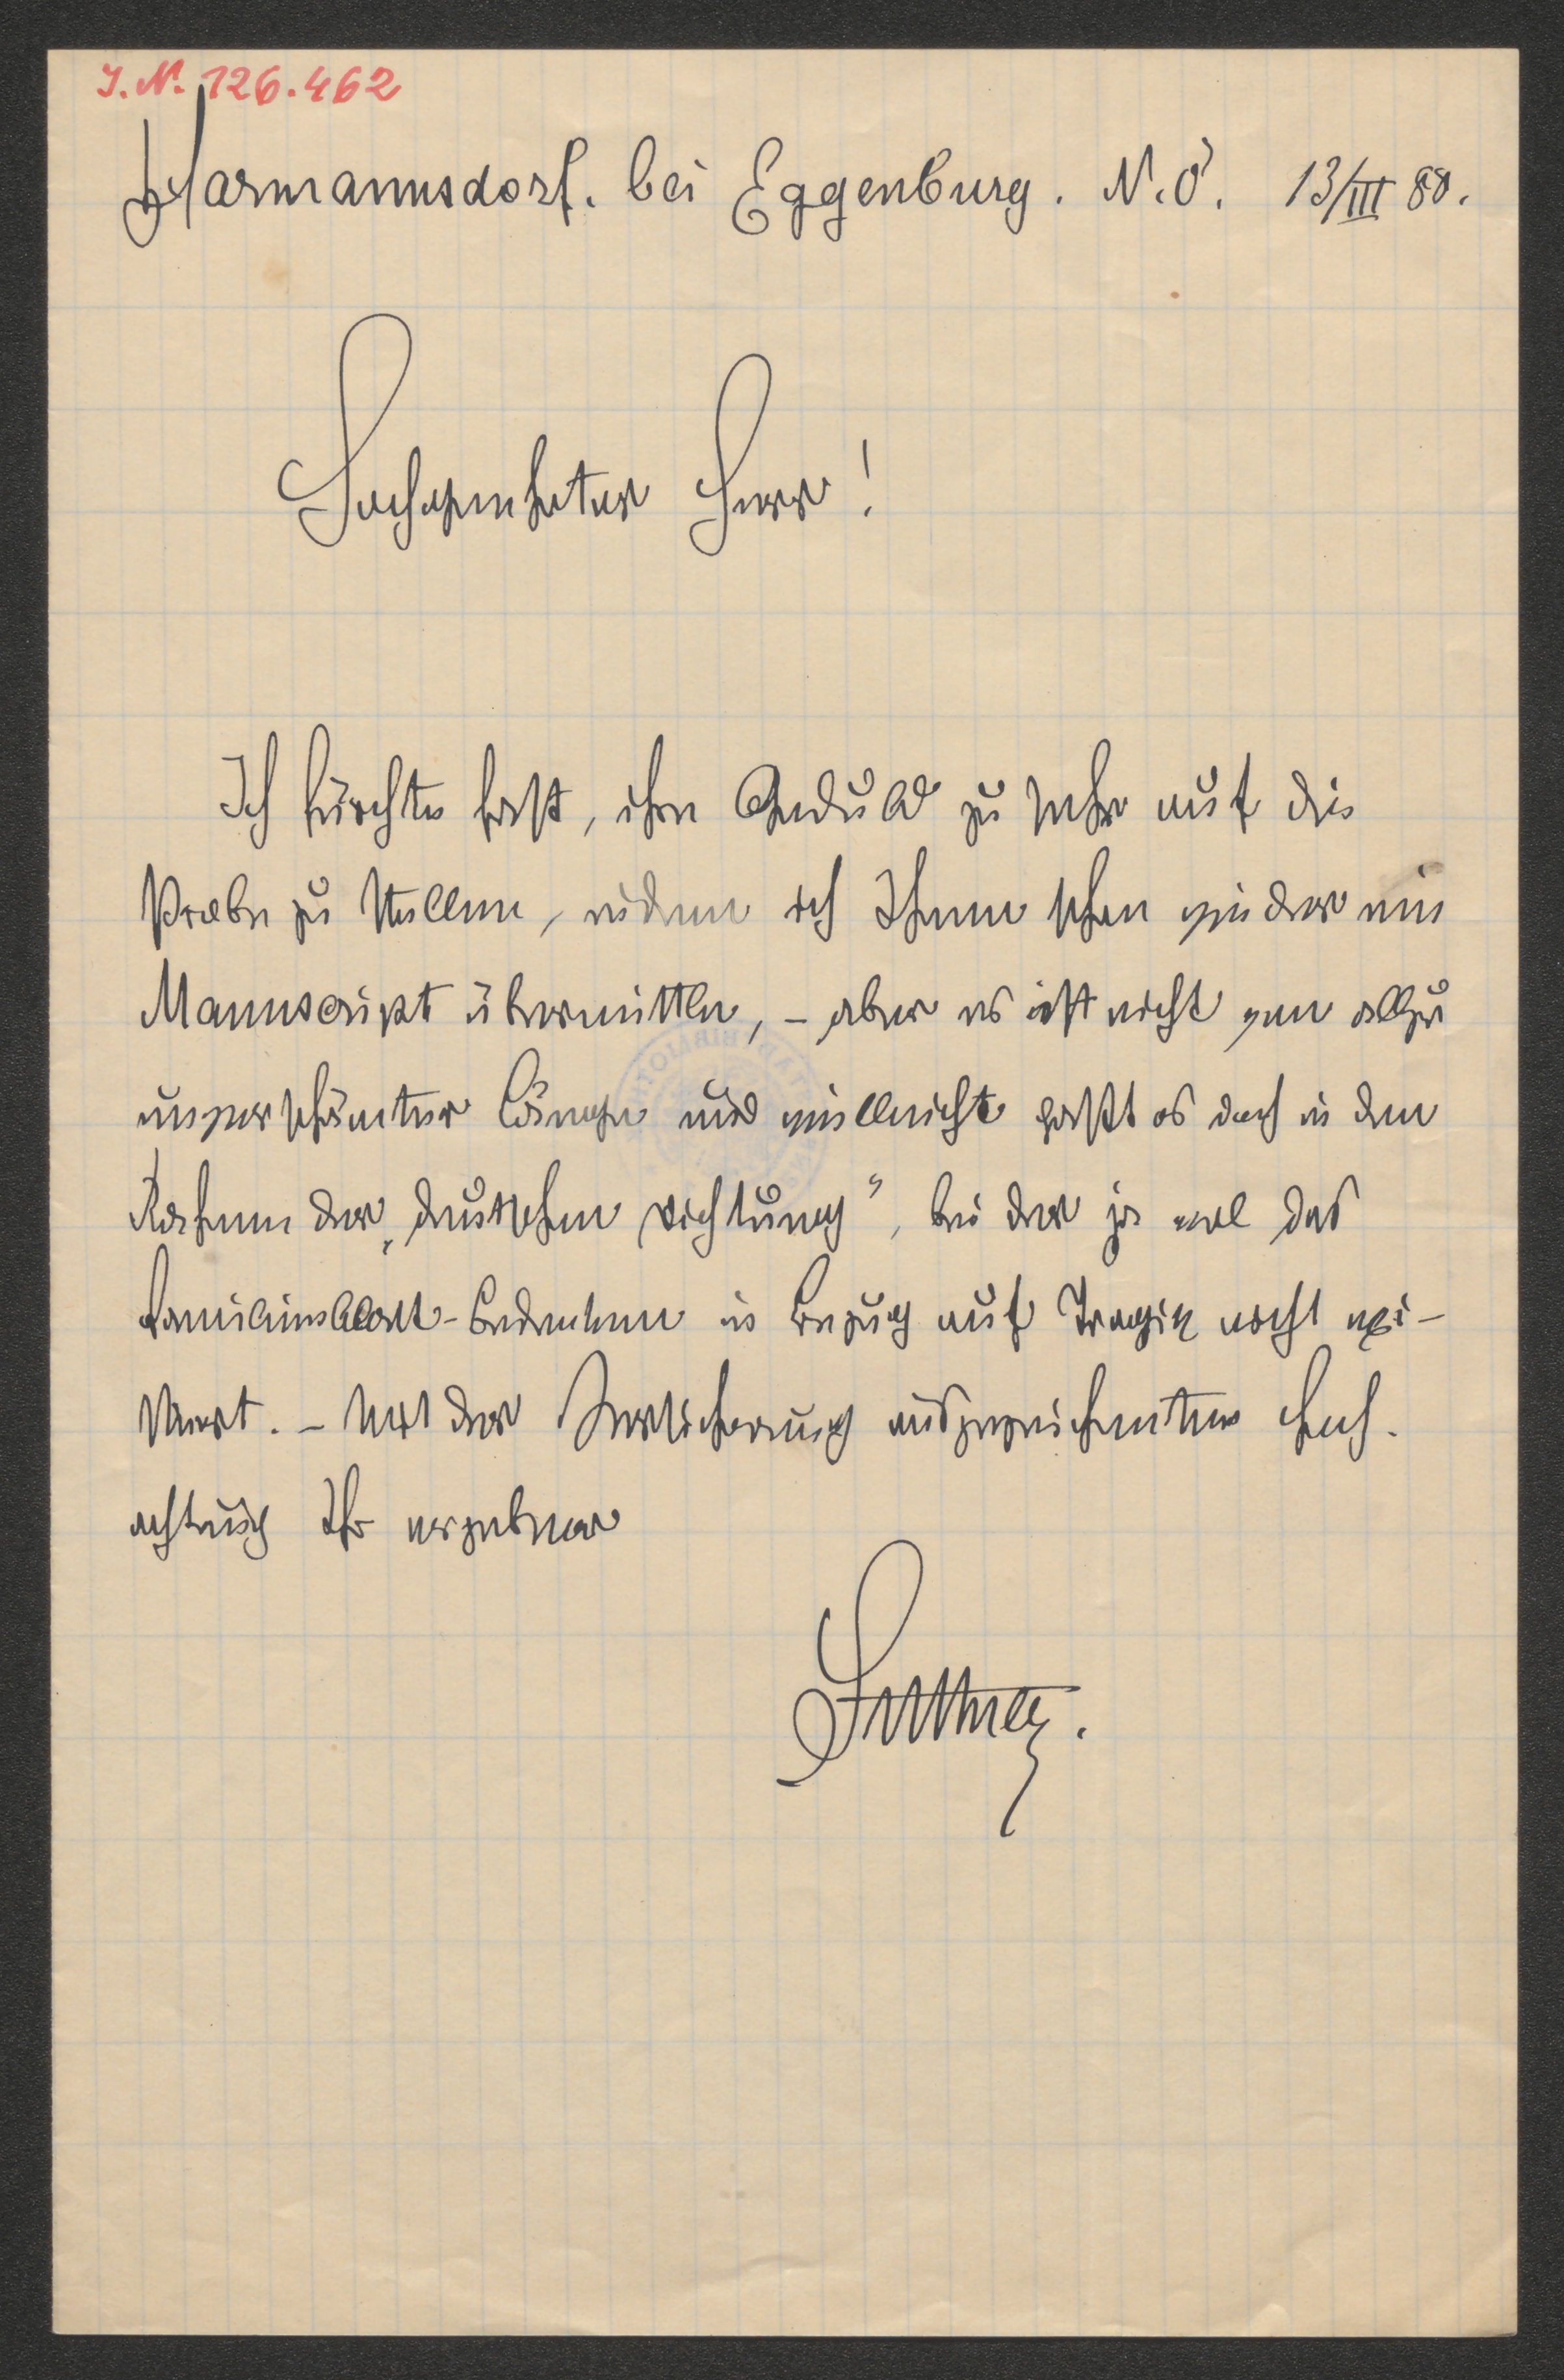 J. N. 126.462
Harmannsdorf. bei Eggenburg. N. Ö. 13/III 88.
Hochgeehrter Herr!
Ich fürchte fast, ihre Geduld zu sehr auf die
Probe zu stellen, indem ich Ihnen schon wieder ein
Manuscript übermittle, – aber es ist nicht von allzu
unverschämter Länge und vielleicht passt es doch in den
Rahmen der „deutschen Dichtung", bei der ja wol das
Familienblatt-Bedenken in Bezug auf Tragik nicht exi-
stiert. – Mit der Versicherung ausgezeichneter Hoch-
achtung Ihr ergebener
Suttner.